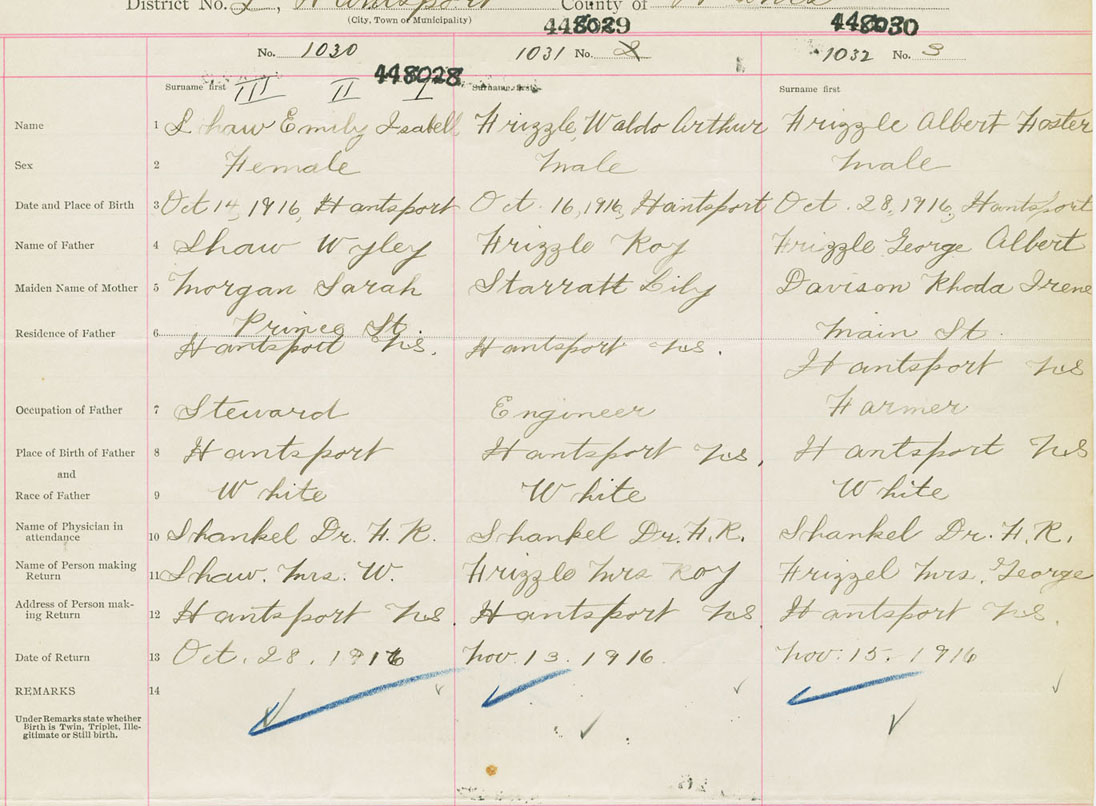 District No. 2, Hantsport County of Hants
(City, Town or Municipality)
448029 448030
No. 1030 1031 No. 2 1032 No. 3
448028
Surname first Surname first Surname first
III II I
Name 1 Shaw Emily Isabell Frizzle, Waldo Arthur Frizzle Albert Foster
Sex 2 Female Male Male
Date and Place of Birth 3 Oct 14, 1916, Hantsport Oct. 16, 1916, Hantsport Oct. 28, 1916, Hantsport
Name of Father 4 Shaw Wyley Frizzle Roy Frizzle George Albert
Maiden Name of Mother 5 Morgan Sarah Starratt Lily Davison Rhoda Irene
Prince St. Main St.
Residence of Father 6 Hantsport N.S. Hantsport N.S. Hantsport N.S
Occupation of Father 7 Steward Engineer Farmer
Place of Birth of Father 8 Hantsport Hantsport N.S. Hantsport N.S
and
Race of Father 9 White White White
Name of Physician in
attendance 10 Shankel Dr. F. R. Shankel Dr. F. R. Shankel Dr. F. R.
Name of Person making
Return 11 Shaw. Mrs. W. Frizzle Mrs Roy Frizzel Mrs. George
Address of Person mak-
ing Return 12 Hantsport N.S. Hantsport N.S. Hantsport N.S.
Date of Return 13 Oct. 28. 1916 Nov. 13. 1916. Nov. 15. 1916
REMARKS 14
Under Remarks state whether
Birth is Twin, Triplet, Ille-
gitimate or Still birth.